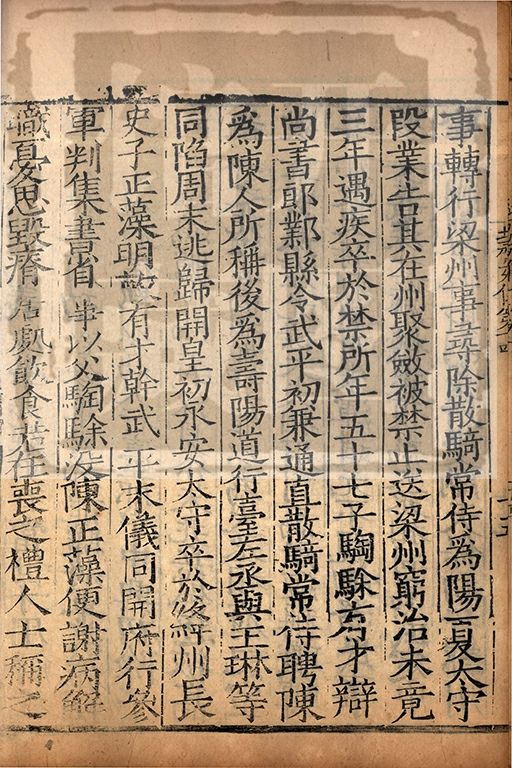 事轉行梁州事尋除散騎常侍爲陽夏太守
段業告其在州聚斂被禁止送梁州窮治未竟
三年遇疾卒於禁所年五十七子騊駼有才辯
尚書郎鄴縣令武平初兼通直散騎常侍聘陳
爲陳人所稱後爲壽陽道行臺左丞與王琳等
同陷周末逃歸開皇初永安太守卒於絳州長
史子正藻明敏有才幹武平末儀同開府行參
軍判集書省事以父騊駼没陳正藻便謝病解
職憂思毀瘠居處飲食若在喪之禮人士稱之